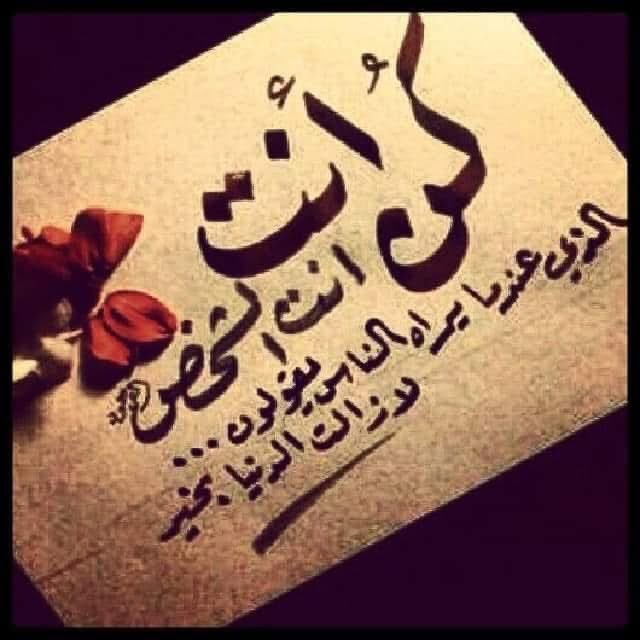 كُن أنت
انت الشخص
الذي عندما يراه الناس يقولون...
لازالت الدنيا بخير